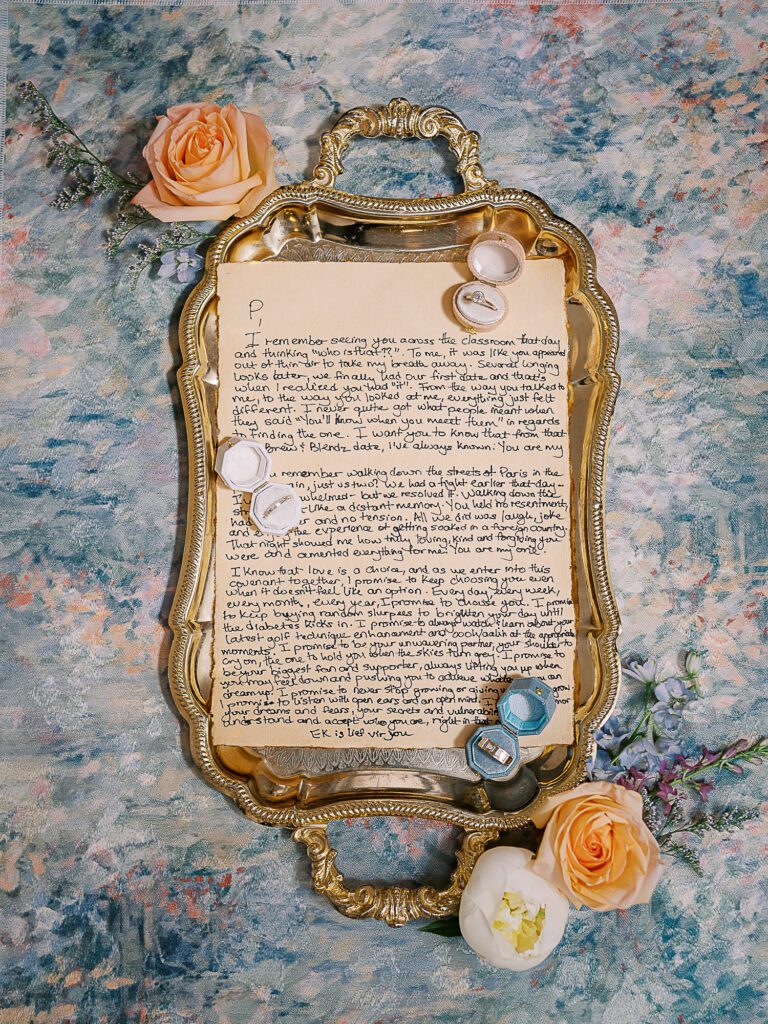 P,
I remember seeing you across the classroom that day
and thinking "who is that??". To me, it was like you appeared
out of thin air to take my breath away. Several longing
looks later, we finally had our first date and that's
when I realized you had "it". From the way you talked to
me, to the way you looked at me, everything just felt
different. I never quite got what people meant when
they said "You'll know when you meet them" in regards
to finding the one. I want you to know that from that
Brew & Blendz date, I've always known. You are my
remember walking down the streets of Paris in the
just us two? We had a fight earlier that day-
but we resolved it. Walking down the
like a distant memory. You held no resentment,
had and no tension. All we did was laugh, joke
and the experience of getting soaked in a foreign country.
That night showed me how truly loving, kind and forgiving you
were and cemented everything for me. You are my only.
I know that love is a choice, and as we enter into this
covenant together, I promise to keep choosing you even
when it doesn't feel like an option. Every day, every week,
every month, every year, I promise to choose you. I promise
to keep buying random slurpees to brighten your day until
the diabetes kicks in. I promise to always watch & learn about your
latest golf technique enhancement and at the appropriate
moments. I promise to be your unwavering partner, your shoulder to
cry on, the one to hold you when the skies turn grey. I promise to
be your biggest fan and supporter, always lifting you up when
you may feel down and pushing you to achieve you can
dream up. I promise to never stop growing or giving
I promise to listen with open ears and an open mind.
your dreams and fears, your secrets and
understand and accept who you are, right in that
EK is lief vir jou